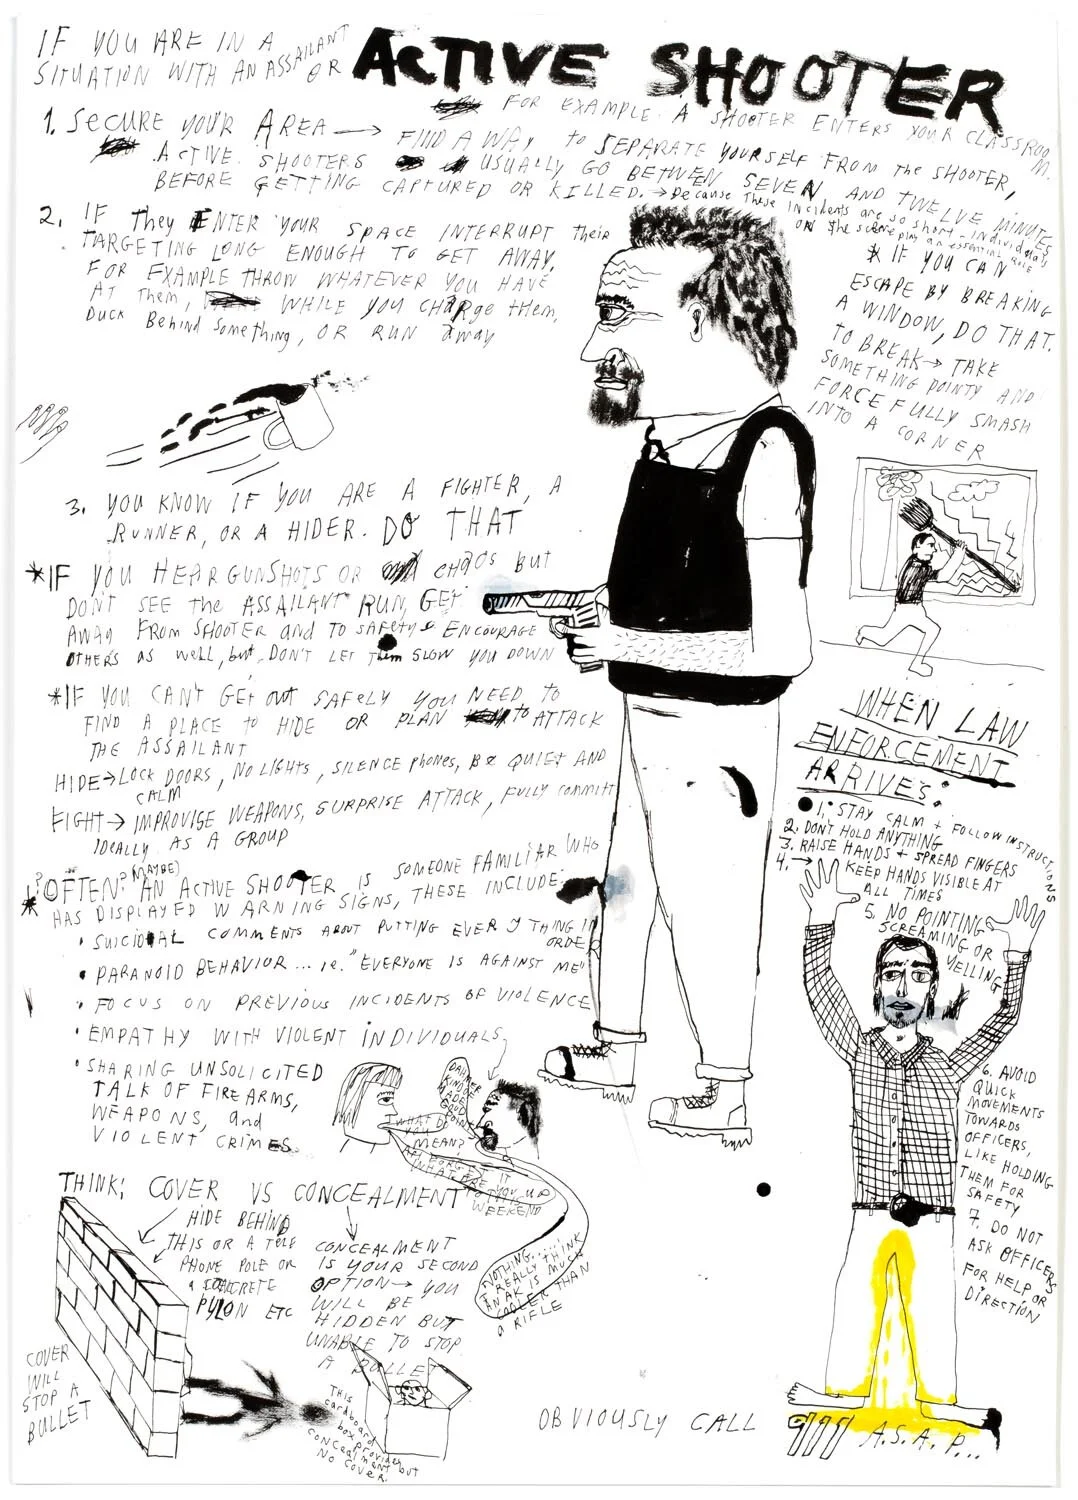 IF YOU ARE IN A
SITUATION WITH AN ASSAILANT
OR ACTIVE SHOOTER
FOR EXAMPLE: A SHOOTER ENTERS YOUR CLASSROOM.
1. SECURE YOUR AREA → FIND A WAY to SEPARATE YOURSELF FROM the SHOOTER,
ACTIVE SHOOTERS USUALLY GO BETWEEN SEVEN AND TWELVE MINUTES
BEFORE GETTING CAPTURED OR KILLED. → Because These Incidents are so short - individuals
ON the scene play an essential role
2. IF They ENTER YOUR SPACE INTERRUPT their
TARGETING LONG ENOUGH TO GET AWAY,
FOR EXAMPLE THROW WHATEVER YOU HAVE
AT them, WHILE YOU CHARge them,
DUCK Behind Something, OR RUN away
* IF YOU CAN
ESCAPE BY BREAKING
A WINDOW, DO THAT.
TO BREAK → TAKE
SOMETHING POINTY AND
FORCEFULLY SMASH
INTO A CORNER
3. YOU KNOW IF YOU ARE A FIGHTER, A
RUNNER, OR A HIDER. DO THAT
*IF YOU HEAR GUNSHOTS OR CHAOS BUT
DON'T SEE the ASSAILANT RUN, GET
AWAY FROM SHOOTER and TO SAFETY & ENCOURAGE
OTHERS AS WELL, but DON'T LET them SLOW YOU DOWN
*IF YOU CAN'T GET OUT SAFELY YOU NEED TO
FIND A PLACE to HIDE OR PLAN to ATTACK
THE ASSAILANT
HIDE → LOCK DOORS, NO LIGHTS, SILENCE Phones, BE QUIET AND
CALM
FIGHT → IMPROVISE WEAPONS, SURPRISE ATTACK, FULLY COMMITT
IDEALLY AS A GROUP
* ?OFTEN? (MAYBE) AN ACTIVE SHOOTER IS SOMEONE FAMILIAR WHO
HAS DISPLAYED WARNING SIGNS, THESE INCLUDE:
• SUICIDAL COMMENTS ABOUT PUTTING EVERYTHING IN
ORDER
• PARANOID BEHAVIOR... ie. "EVERYONE IS AGAINST ME"
• FOCUS ON PREVIOUS INCIDENTS OF VIOLENCE
• EMPATHY WITH VIOLENT INDIVIDUALS
• SHARING UNSOLICITED
TALK OF FIREARMS,
WEAPONS, and
VIOLENT CRIMES
DAHMER
KINDA
MADE A
GOOD
POINT
WHAT DO
YOU
MEAN?
WHAT ARE
YOU UP
TO
WEEKEND
NOTHING....
I REALLY THINK
AN AK IS MUCH
COOLER THAN
A RIFLE
THINK: COVER VS CONCEALMENT
HIDE BEHIND
THIS OR A TELE
PHONE POLE OR
A CONCRETE
PYLON ETC
CONCEALMENT
IS YOUR SECOND
OPTION → YOU
WILL BE
HIDDEN BUT
UNABLE TO STOP
A BULLET
COVER
WILL
STOP A
BULLET
THIS
cardboard
box provides
CONCEALMENT but
NO COVER.
WHEN LAW
ENFORCEMENT
ARRIVES:
1. STAY CALM + FOLLOW INSTRUCTIONS
2. DON'T HOLD ANYTHING
3. RAISE HANDS + SPREAD FINGERS
4. → KEEP HANDS VISIBLE AT
ALL TIMES
5. NO POINTING
SCREAMING OR
YELLING
6. AVOID
QUICK
MOVEMENTS
TOWARDS
OFFICERS,
LIKE HOLDING
THEM FOR
SAFETY
7. DO NOT
ASK OFFICERS
FOR HELP OR
DIRECTION
OBVIOUSLY CALL 911 A.S.A.P...